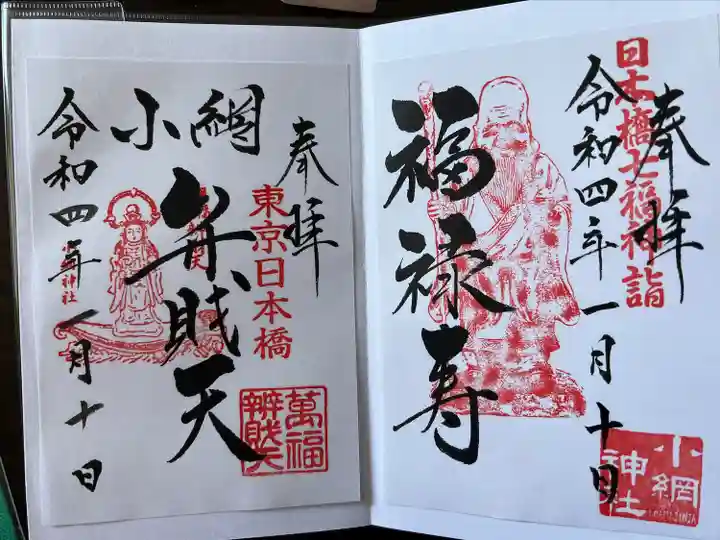 奉拝
日本橋七福神詣
令和四年一月十日
福禄寿
小網
神社
奉拝
東京日本橋
小網
弁財天
萬福
辨財天
令和四年一月十日
神社